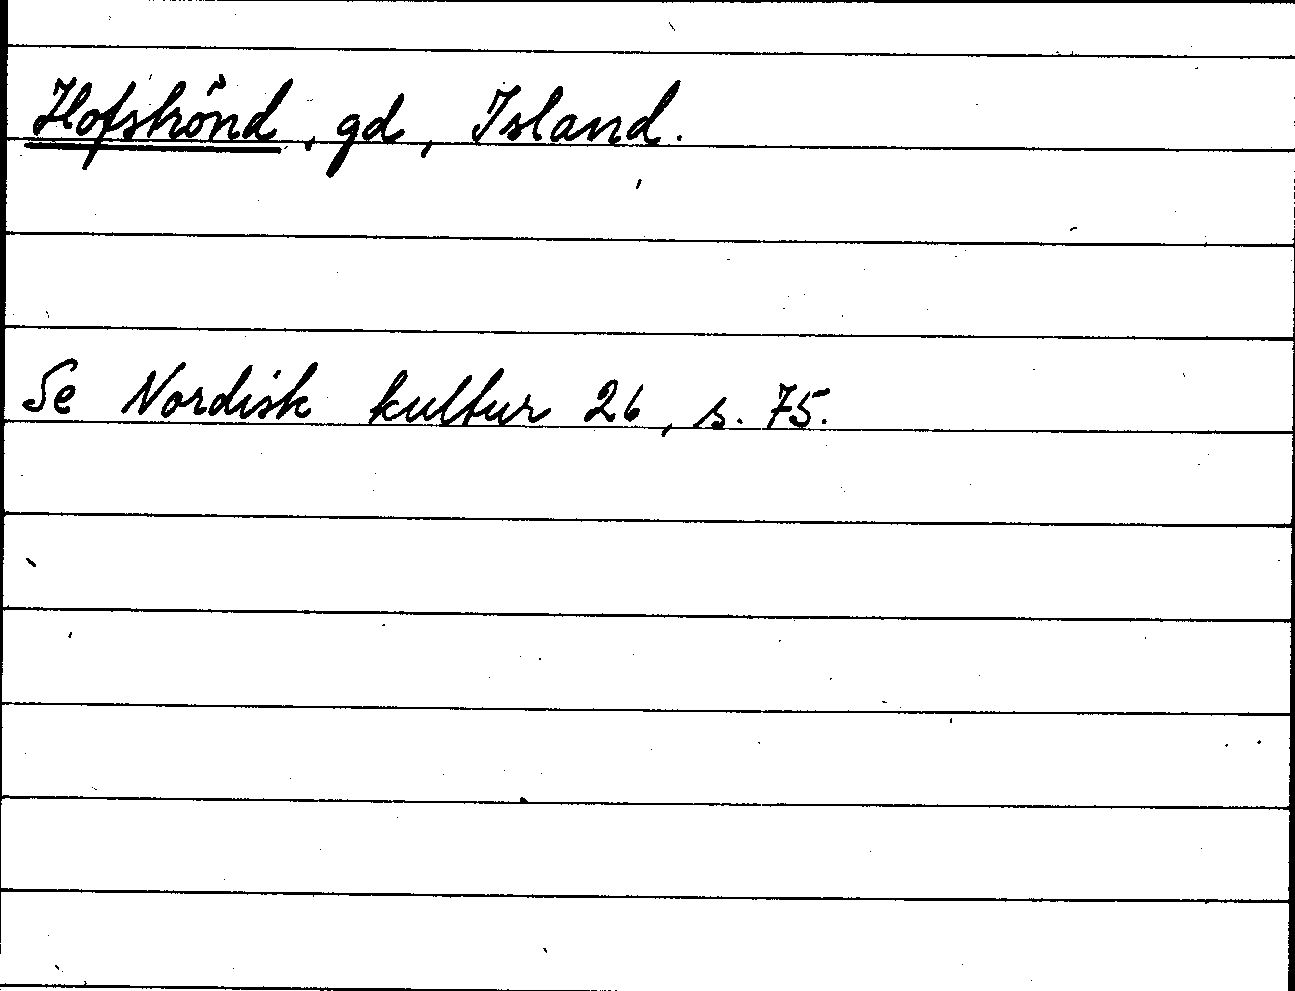 Hofshönd, gd, Island.
Se Nordisk kultur 26, s. 75.